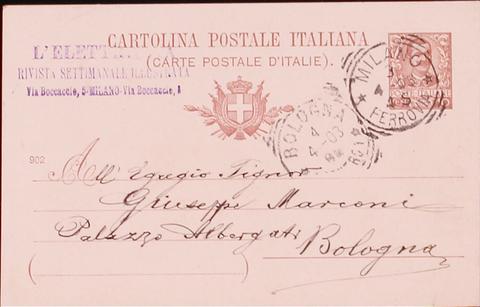 L'ELETT
RIVISTA SETTIMANALE ILLUSTRATA
Via Boccaccio, 5-MILANO-Via Boccaccio, 5
CARTOLINA POSTALE ITALIANA
(CARTE POSTALE D'ITALIE).
MILANO
FERROVIA
BOLOGNA
4
4-03
902
All' Egregio Signor
Giuseppe Marconi
Palazzo Albergati
Bologna